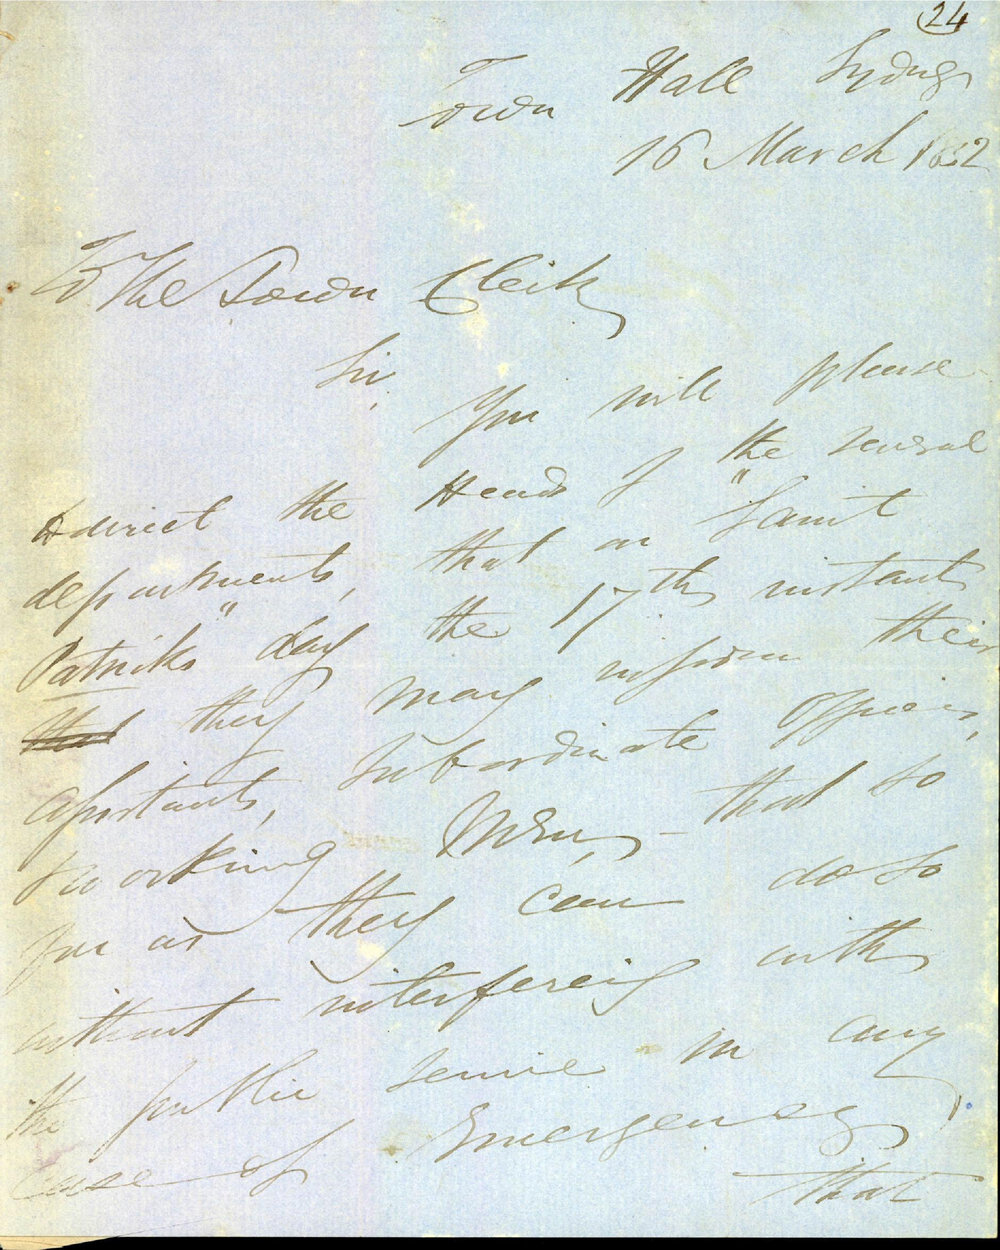 24
Town Hall Sydney
16 March 1852
To The Town Clerk
Sir,
You will please
direct the Heads of the several
departments, that on "Saint
Patricks" day the 17th instant
that they may inform their
assistants, Subordinate Officers,
& working Men, that so
far as they can do so
without interfering with
the public service in any
case of Emergency
that